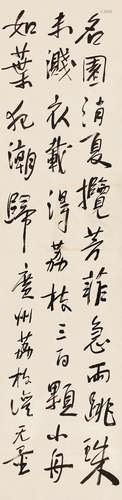 名園消夏攬芳菲急雨跳珠
未濺衣載得荔枝三百顆小舟
如葉犯潮歸 廣州荔枝灣 无量